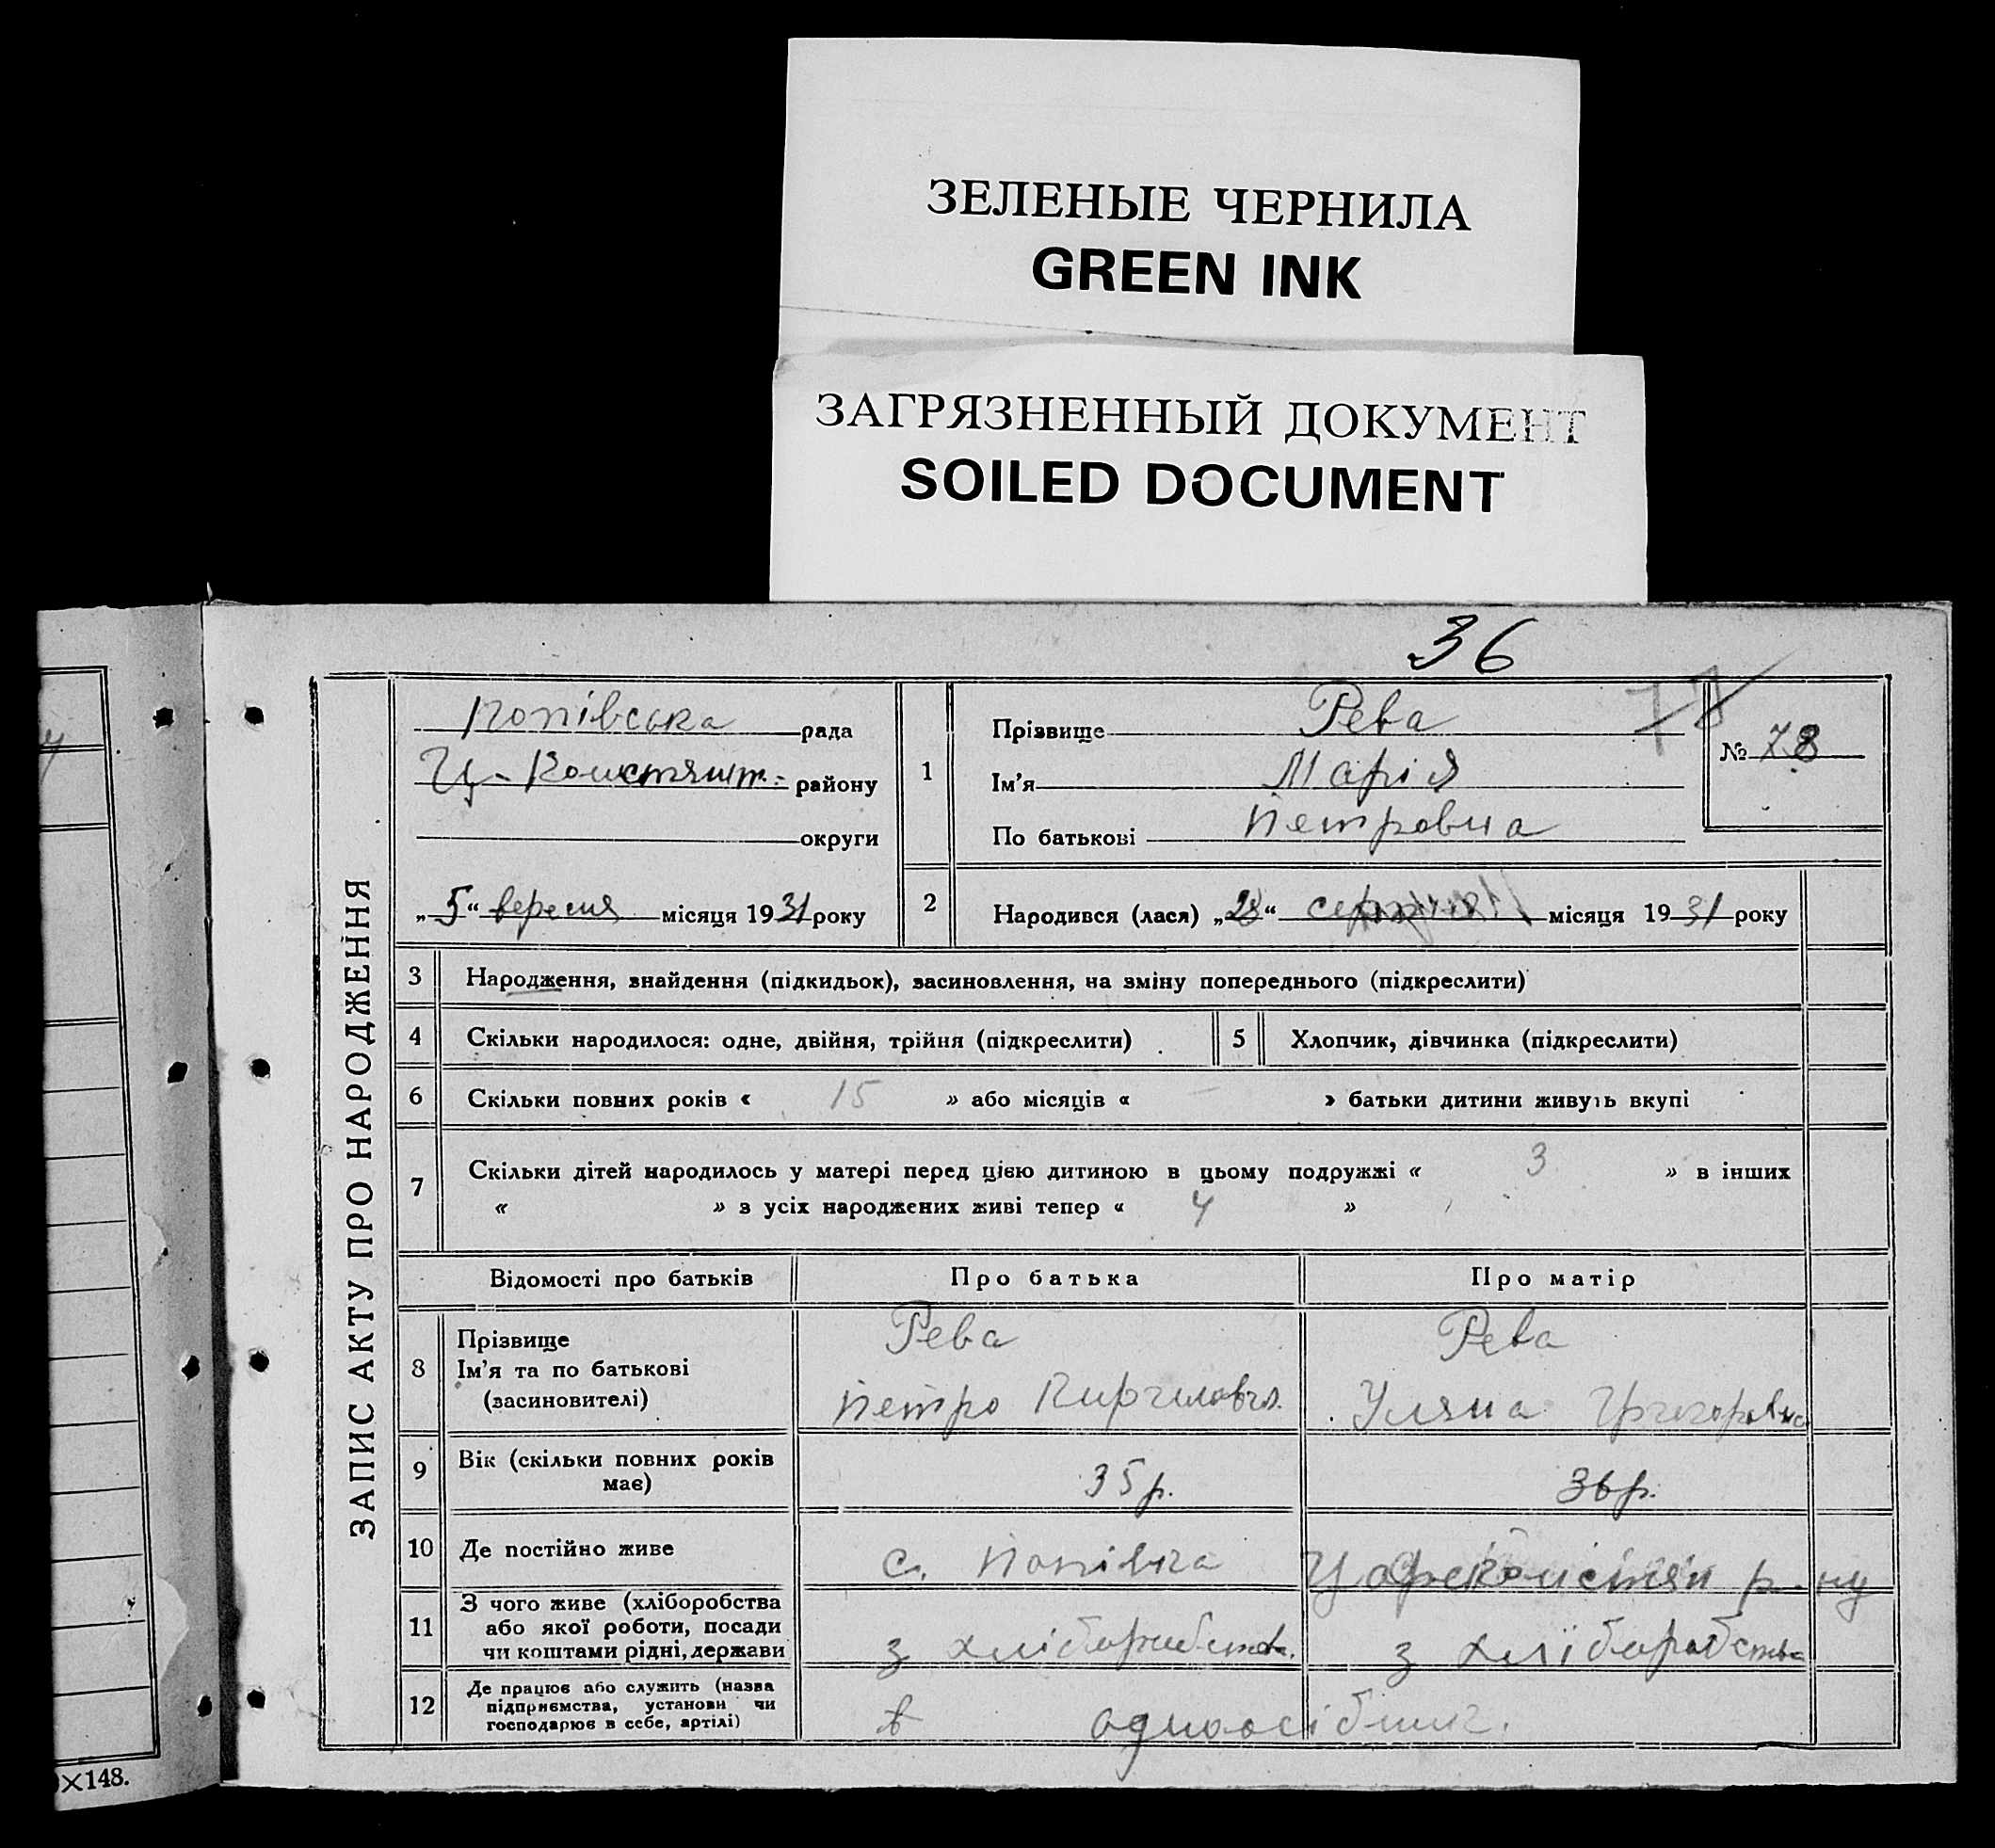 ЗЕЛЕНЫЕ ЧЕРНИЛА
GREEN INK
ЗАГРЯЗНЕННЫЙ ДОКУМЕНТ
SOILED DOCUMENT
36
78
ЗАПИС АКТУ ПРО НАРОДЖЕННЯ
Попівська рада
Ц-Констянт. району
округи
„5“ вересня місяця 1931 року
1
Прізвище Рева
Ім'я Марія
По батькові Петровна
№ 78
2 Народився (лася) „28“ серпня місяця 1931 року
3 Народження, знайдення (підкидьок), засиновлення, на зміну попереднього (підкреслити)
4 Скільки народилося: одне, двійня, трійня (підкреслити)
5 Хлопчик, дівчинка (підкреслити)
6 Скільки повних років « 15 » або місяців « – » батьки дитини живуть вкупі
7 Скільки дітей народилось у матері перед цією дитиною в цьому подружжі « 3 » в інших
« » з усіх народжених живі тепер « 4 »
Відомості про батьків Про батька Про матір
8 Прізвище
Ім'я та по батькові
(засновителі)
Рева
Петро
Рева
Уляна Григоровна
9 Вік (скільки повних років
має)
35 р. 36 р.
10 Де постійно живе
с. Попівка р-ну
11 З чого живе (хліборобства
або якої роботи, посади
чи коштами рідні, держави
з хліборобства. з хліборобства
12 Де працює або служить (назва
підприємства, установи чи
господарює в себе, артілі)
одноосібник.
×148.